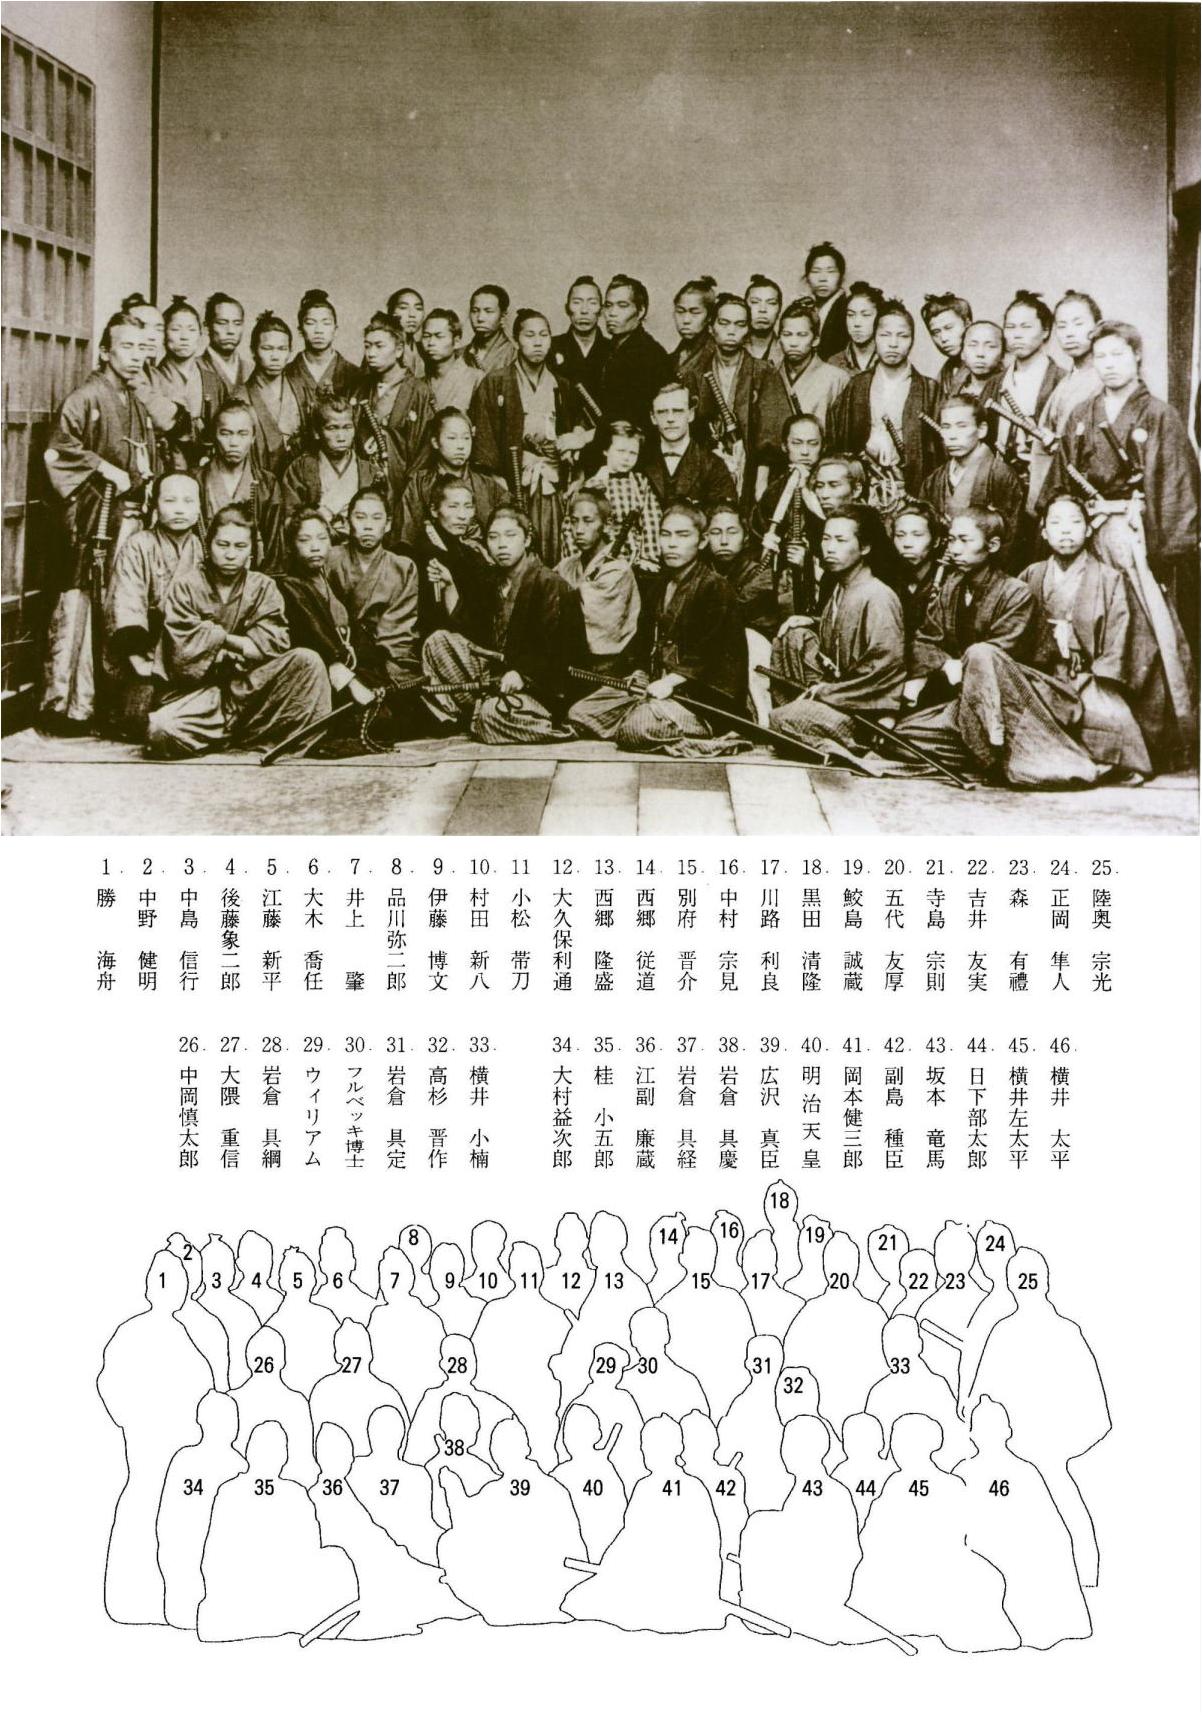 1. 勝 海舟
2. 中野 健明
3. 中島 信行
4. 後藤象二郎
5. 江藤 新平
6. 大木 喬任
7. 井上 肇
8. 品川弥二郎
9. 伊藤 博文
10. 村田 新八
11 小松 帯刀
12. 大久保利通
13. 西郷 隆盛
14. 西郷 従道
15. 別府 晋介
16. 中村 宗見
17. 川路 利良
18. 黒田 清隆
19. 鮫島 誠蔵
20. 五代 友厚
21. 寺島 宗則
22. 吉井 友実
23. 森 有禮
24. 正岡 隼人
25. 陸奥 宗光
26. 中岡慎太郎
27. 大隈 重信
28. 岩倉 具綱
29. ウィリアム
30. フルベッキ博士
31. 岩倉 具定
32. 高杉 晋作
33. 横井 小楠
34. 大村益次郎
35. 桂 小五郎
36. 江副 廉蔵
37. 岩倉 具経
38. 岩倉 具慶
39. 広沢 真臣
40. 明治天皇
41. 岡本健三郎
42. 副島 種臣
43. 坂本 竜馬
44. 日下部太郎
45. 横井左太平
46. 横井 太平
18
8
14
16
19
21
24
2
1
3
4
5
6
7
9
10
11
12
13
15
17
20
22
23
25
26
27
28
29
30
31
32
33
38
34
35
36
37
39
40
41
42
43
44
45
46